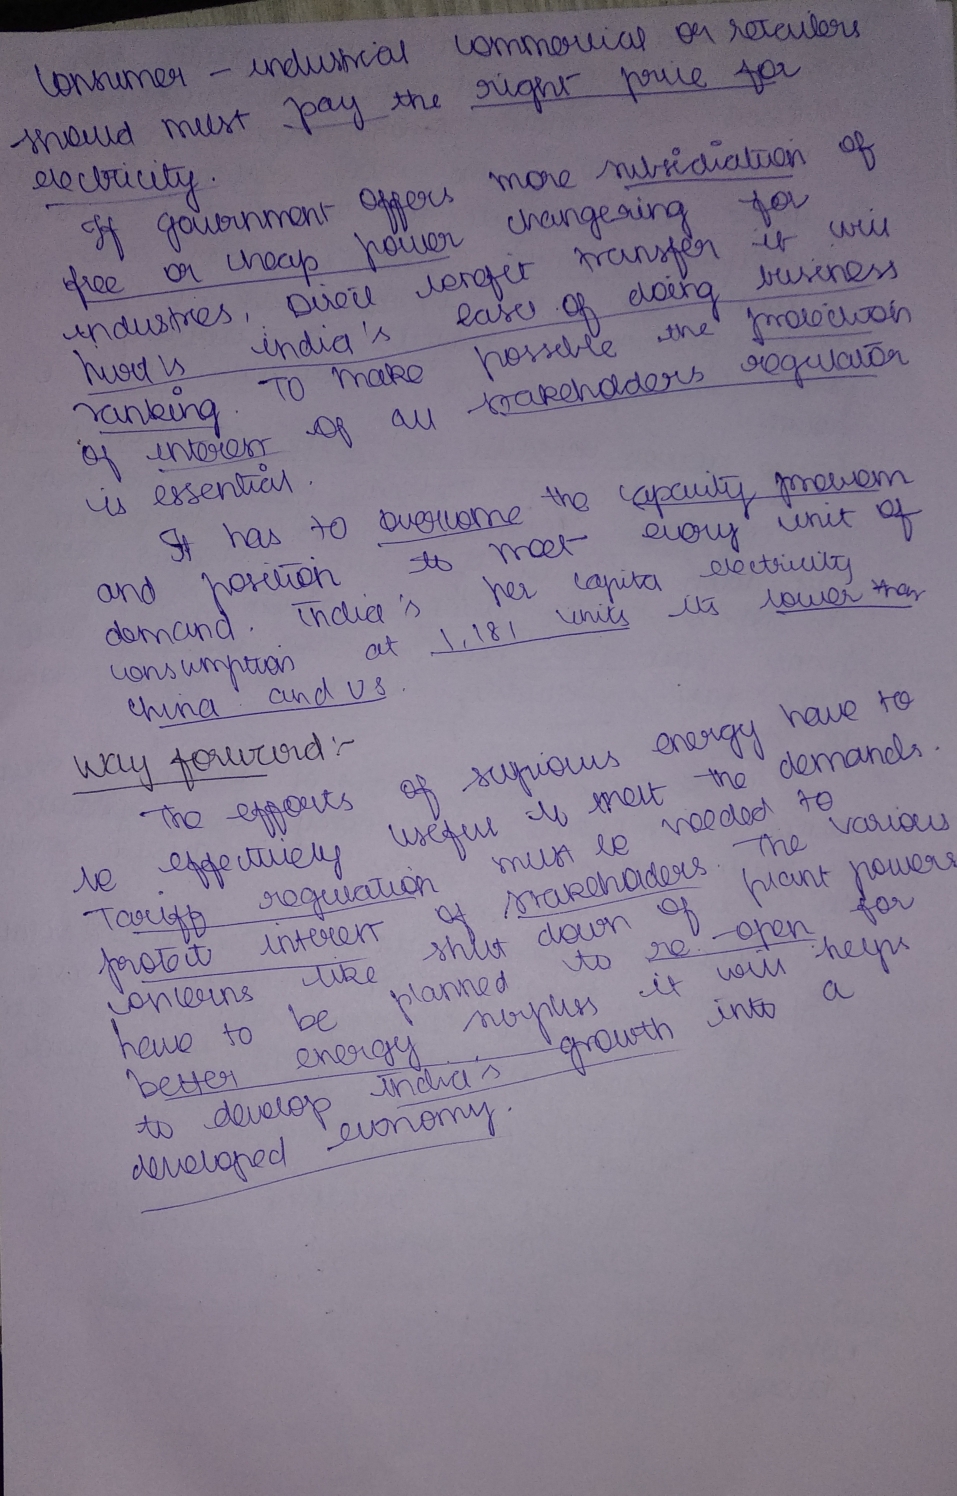 Consumer - industrial commercial or retailers
should must pay the right price for
electricity.
If government offers more subsidiation of
free or cheap power changering for
industries, Direct transfer it will
india's ease of doing business
ranking. To make possible the protection
of interest of all stakehoders regulator
is essential.
It has to overcome the capacity
and position to meet every unit of
demand. India's per capita electricity
consumption at 1,181 units is lower than
China and US.
Way forward:-
The efforts of energy have to
be effectively useful to meet the demands.
Tariff regulation must be needed to
protect interest of stakehoders. The various
concerns like shut down of plant powers
have to be planned to re-open for
better energy surpluss it will helps
to develop india's growth into a
developed economy.